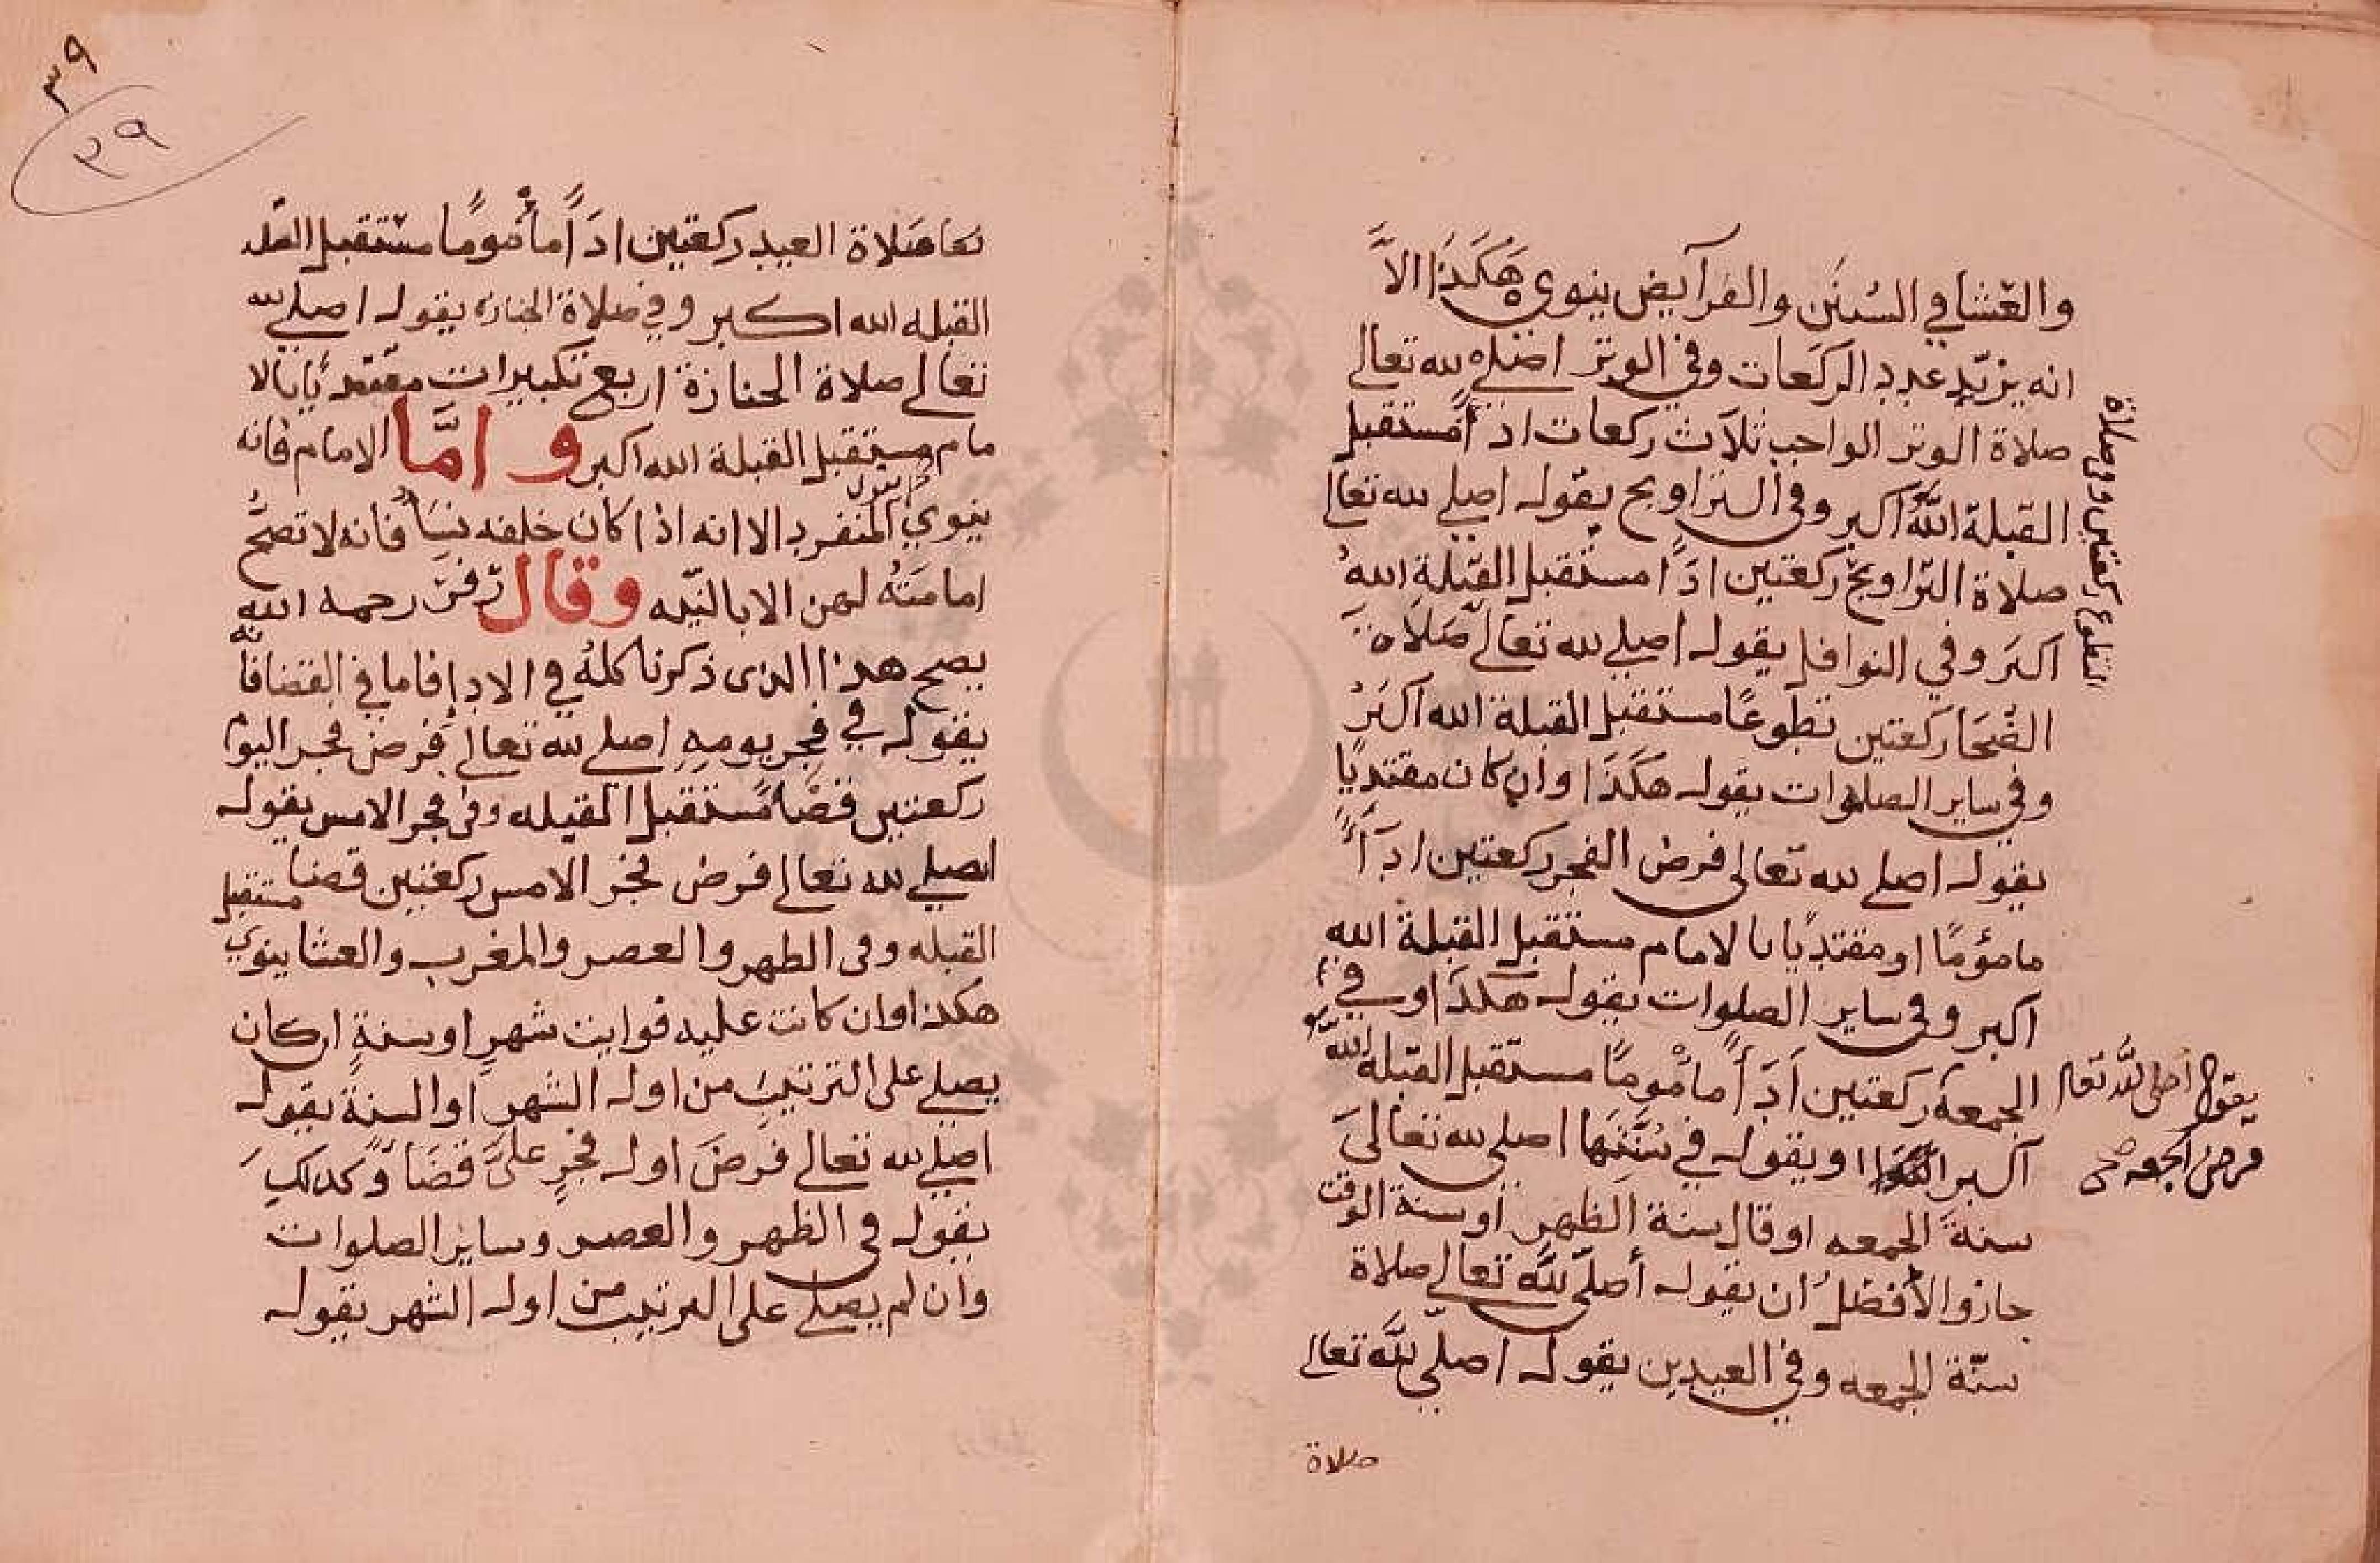 والعشا في السُنَن والفرآيض ينوي هَكَذَا الاَّ
انه يزيد عدد الركعات وفي الوتر اصلي لله تعالى
صلاة الوتر الواجب ثلاث ركعات ادآً مستقبل
القبلة اللهُ اكبر وفي التراويح يقول اصلي لله تعالى
صلاة التراويح ركعتين ادآً مستقبل القبلة اللهُ
اكبَر وفي النوافل يقول اصلي لله تعالى صَلَاة
الضُحَا ركعتين تطوعًا مستقبل القبلة الله اكبَرُ
وفي ساير الصلوات يقول هَكَذَا وان كان مقتديًا
يقول اصلي لله تعالى فرض الفجر ركعتين ادآً
مامؤمًا او مقتديًا بالامام مستقبل القبلة الله
اكبر وفي ساير الصلوات يقول هَكَذَا وفي
الجمعه ركعتين ادَآً مأمومًا مستقبل القبلة الله
اكبر ويقول في سُنَنها اصلي لله تعالىَ
سنةَ الجمعه او قال سنة الظهر او سنة الوقت
جاز والأفضلُ ان يقول أصلّي لله تعالى صلاة
سنّة الجمعه وفي العيدين يقول اصلّي للّه تعالى
صلاة
ركعتين وفي صلاة
التطوع
يقول اصلي لله تعالى
فرض الجمعه صح
٣٩
٣٩
تعا صَلاة العيد ركعتين ادَآً مأمومًا مستقبل القبله
القبله الله اكبر وفي صلاة الجنازه يقول اصلي لله
تعالى صلاة الجنازة اربع تكبيرات مقتديًا بالا
مام مستقبل القبلة الله اكبر و امَّا الامام فانه
ينوي المنفرد الا انه اذا كان خلفه نسَا فانه لا تصحُّ
امامَتهُ لهن الا بالنيّه وقال زفر رحمه الله
يصح هذا الذى ذكرنا كلهُ في الادا فاما في القضا فانه
يقول في فجر يومهِ اصلي لله تعالى فرض فجر اليوم
ركعتين قضًا مستقبل القبله وفي فجر الامس يقول
اصلي لله تعالى فرض فجر الامس ركعتين قضا مستقبل
القبله وفى الظهر والعصر والمغرب والعشا ينوي
هكذا وان كانت عليه فوايت شهرٍ او سنةٍ ان كان
يصلي على الترتيبِ من اول الشهر او السنةِ يقول
اصلي لله تعالى فرضَ اول فجرٍ علىَّ قضَاً وكدلكَ
يقول في الظهر والعصر وساير الصلوات
وان لم يصلي على الترتيب من اول الشهر يقول